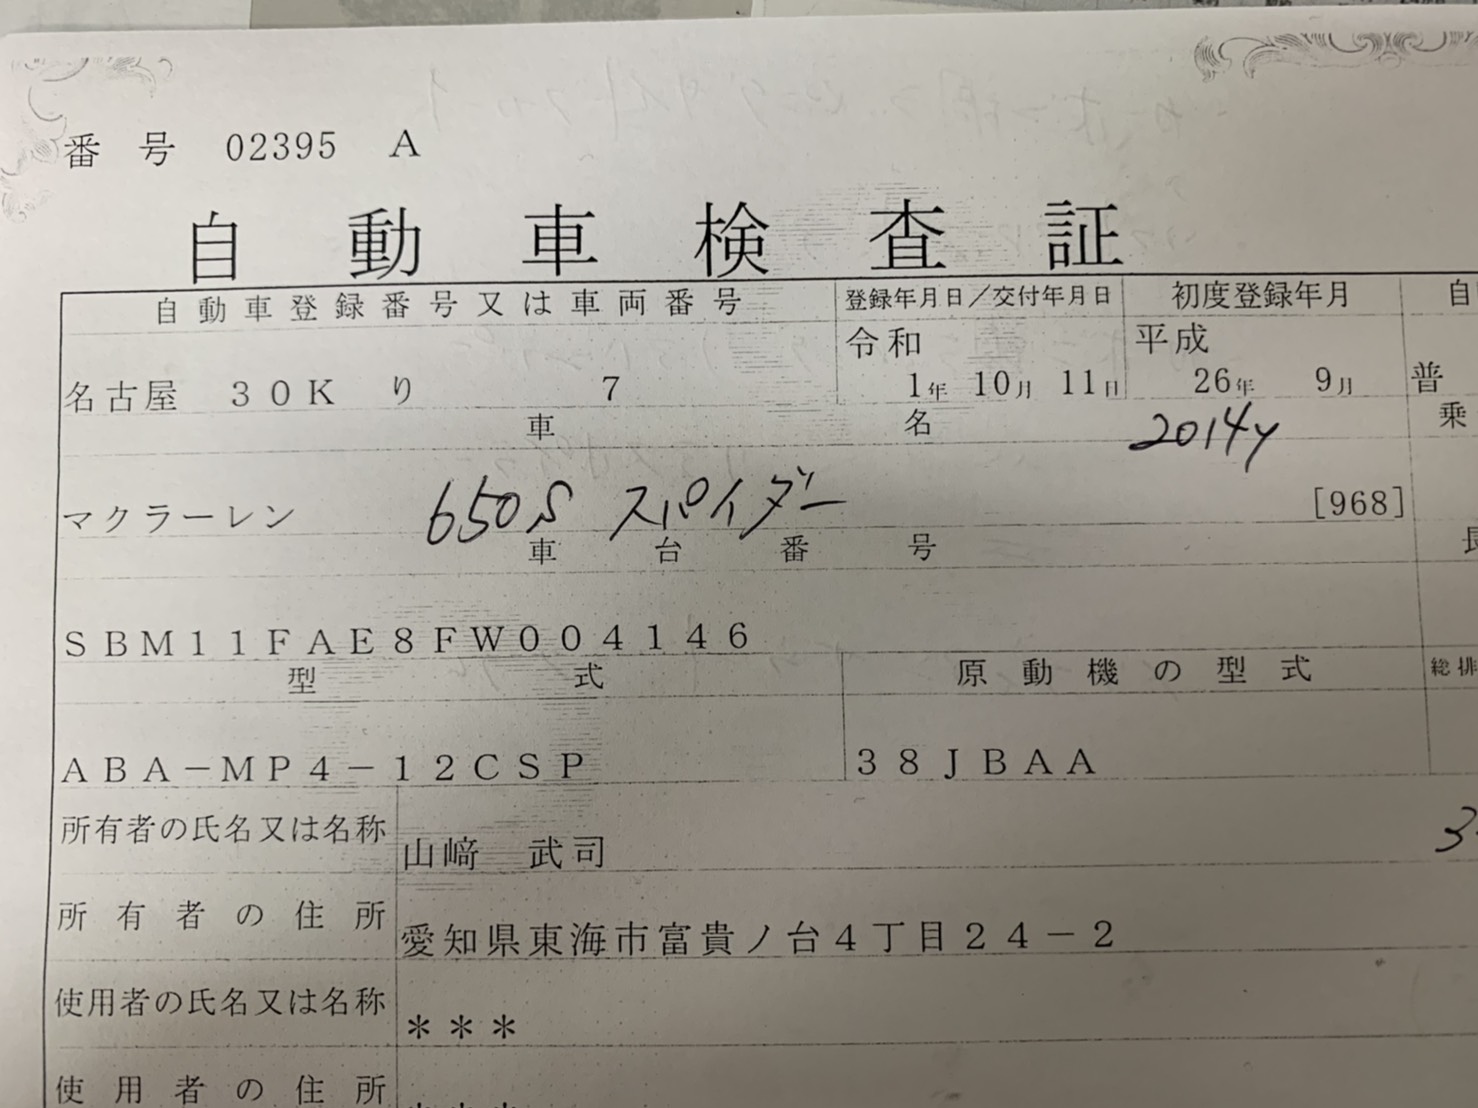 番号 02395 A
自動車検査証
自動車登録番号又は車両番号 登録年月日／交付年月日 初度登録年月
令和 平成
名古屋 30K り 7 1年 10月 11日 26年 9月 普
車名 2014y 乗
マクラーレン 650S スパイダー [968]
車台番号 長
SBM11FAE8FW004146
型式 原動機の型式 総排
ABA-MP4-12CSP 38JBAA
所有者の氏名又は名称 山﨑 武司
所有者の住所 愛知県東海市富貴ノ台4丁目24-2
使用者の氏名又は名称 ＊＊＊
使用者の住所 ＊＊＊